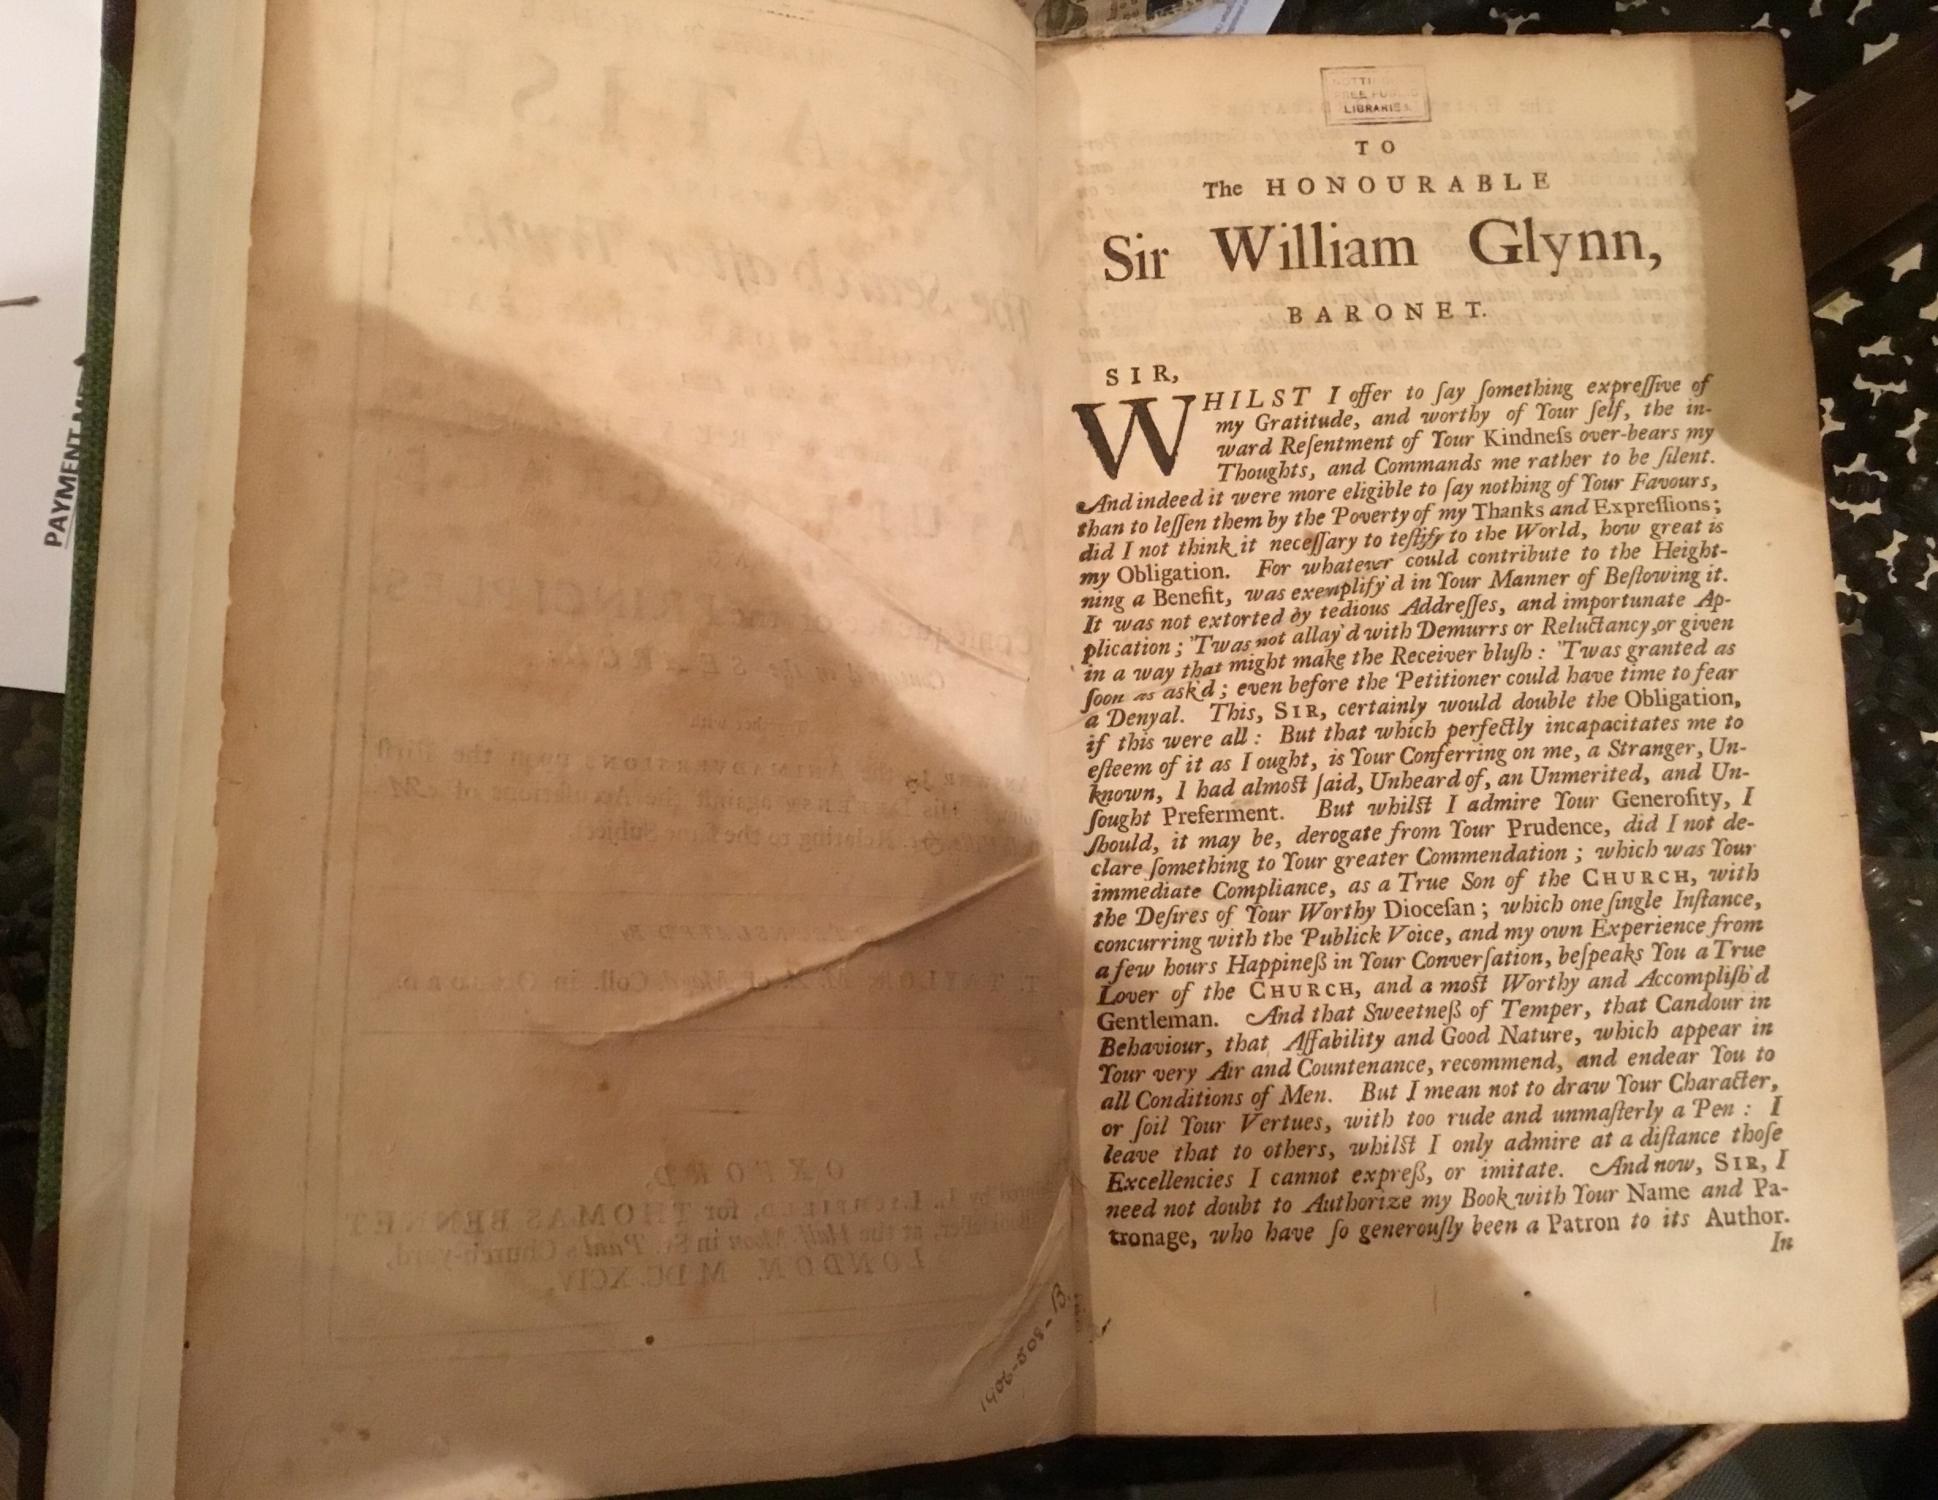 PAYMENT
LIBRARIES
TO
The HONOURABLE
Sir William Glynn,
BARONET.
SIR,
WHILST I offer to ſay ſomething expreſſive of
my Gratitude, and worthy of Your ſelf, the in-
ward Reſentment of Your Kindneſs over-bears my
Thoughts, and Commands me rather to be ſilent.
And indeed it were more eligible to ſay nothing of Your Favours,
than to leſſen them by the Poverty of my Thanks and Expreſſions;
did I not think it neceſſary to teſtify to the World, how great is
my Obligation. For whatever could contribute to the Height-
ning a Benefit, was exemplify'd in Your Manner of Beſtowing it.
It was not extorted by tedious Addreſſes, and importunate Ap-
plication; 'Twas not allay'd with Demurrs or Reluctancy, or given
in a way that might make the Receiver bluſh: 'Twas granted as
ſoon as ask'd; even before the Petitioner could have time to fear
a Denyal. This, SIR, certainly would double the Obligation,
if this were all: But that which perfectly incapacitates me to
eſteem of it as I ought, is Your Conferring on me, a Stranger, Un-
known, I had almoſt ſaid, Unheard of, an Unmerited, and Un-
ſought Preferment. But whilſt I admire Your Generoſity, I
ſhould, it may be, derogate from Your Prudence, did I not de-
clare ſomething to Your greater Commendation; which was Your
immediate Compliance, as a True Son of the CHURCH, with
the Deſires of Your Worthy Dioceſan; which one ſingle Inſtance,
concurring with the Publick Voice, and my own Experience from
a few hours Happineß in Your Converſation, beſpeaks You a True
Lover of the CHURCH, and a moſt Worthy and Accompliſh'd
Gentleman. And that Sweetneß of Temper, that Candour in
Behaviour, that Affability and Good Nature, which appear in
Your very Air and Countenance, recommend, and endear You to
all Conditions of Men. But I mean not to draw Your Character,
or ſoil Your Vertues, with too rude and unmaſterly a Pen: I
leave that to others, whilſt I only admire at a diſtance thoſe
Excellencies I cannot expreß, or imitate. And now, SIR, I
need not doubt to Authorize my Book with Your Name and Pa-
tronage, who have ſo generouſly been a Patron to its Author.
In